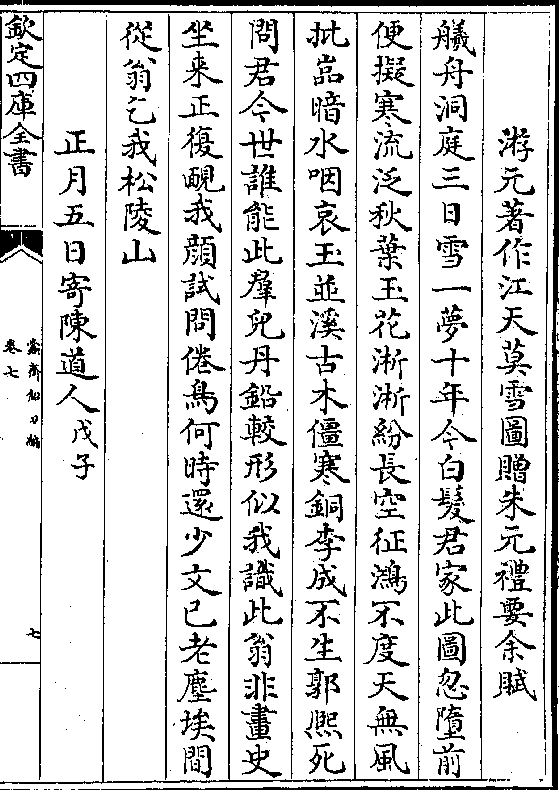 游元著作江天莫雪圖贈朱元禮要余賦
艤舟洞庭三日雪一夢十年今白髮君家此圖忽墮前
便擬寒流泛秋葉玉花淅淅紛長空征鴻不度天無風
批嵓暗水咽哀玉並溪古木僵寒銅李成不生郭熈死
問君今世誰能此羣兒丹鉛較形似我識此翁非畫史
坐来正復靦我顔試問倦鳥何時還少文已老塵埃間
從翁乞我松陵山
正月五日寄陳道人戊子
欽定四庫全書
卷七
七